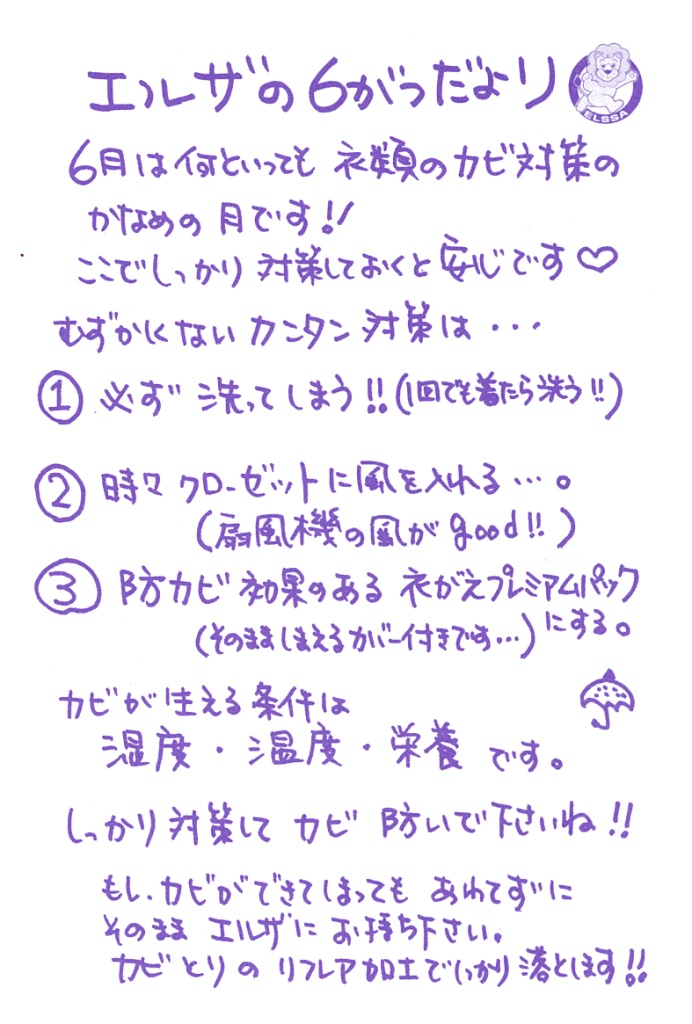 エルザの6がつだより
ELSSA
6月は何といっても 衣類のカビ対策の
かなめの月です!!
ここでしっかり対策しておくと安心です♡
むずかしくないカンタン対策は・・・
① 必ず洗ってしまう!!(1回でも着たら洗う!!)
② 時々クローゼットに風を入れる…。
(扇風機の風がgood!!)
③ 防カビ効果のある 衣がえプレミアムパック
にする。
(そのまましまえるカバー付きです…)
カビが生える条件は
湿度・温度・栄養 です。
しっかり対策して カビ防いで下さいね!!
もし、カビができてしまっても あわてずに
そのまま エルザに お持ち下さい。
カビとりの リフレア加工でしっかり落とします!!